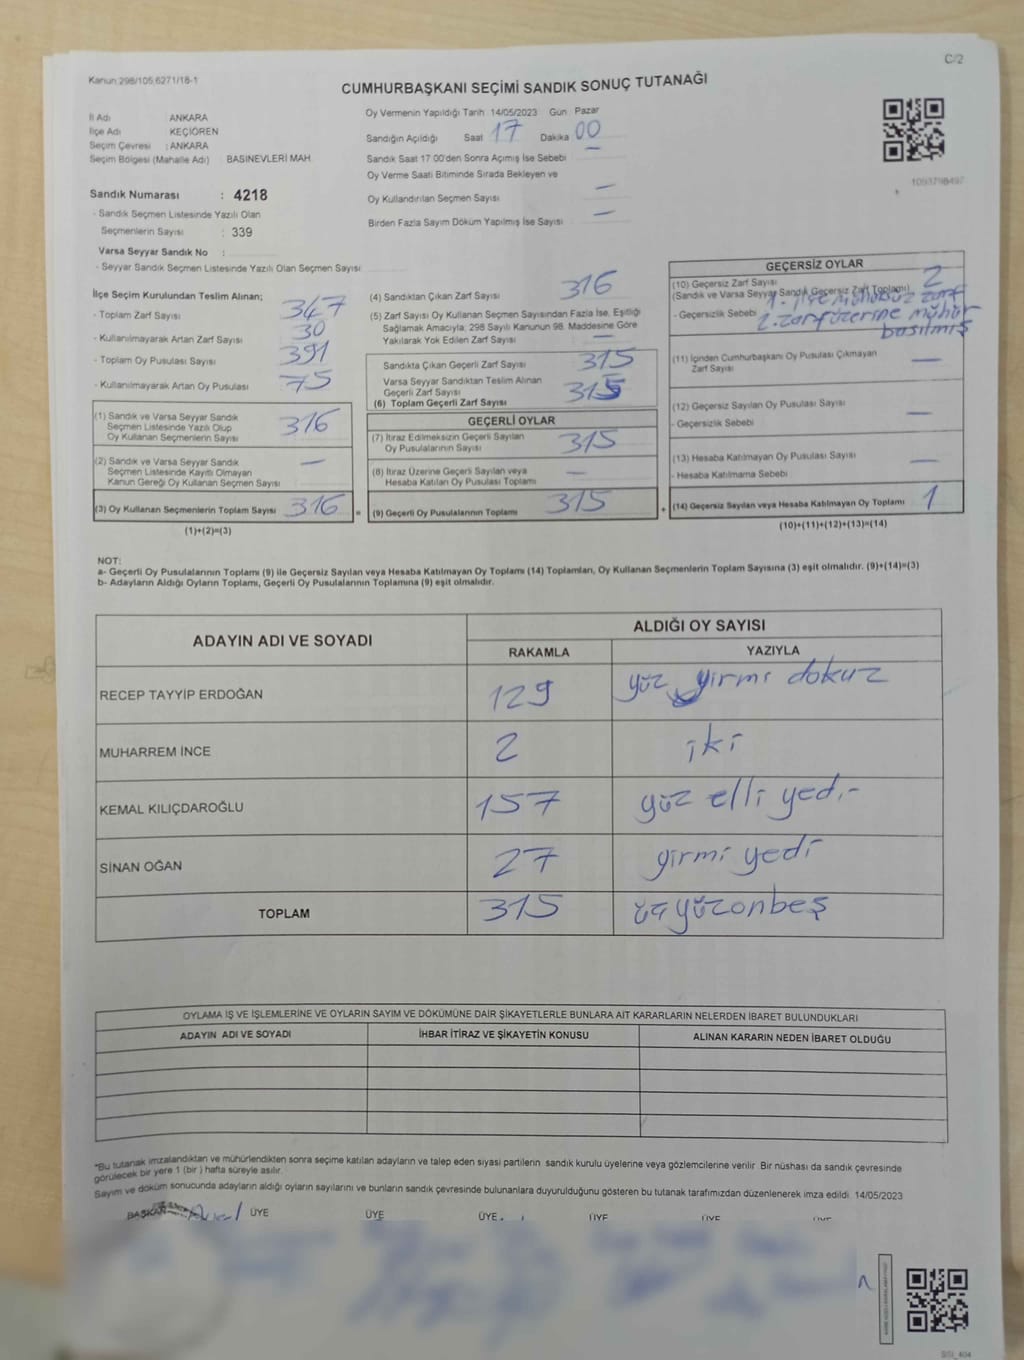 C/2
Kanun 298/105,6271/18-1
CUMHURBAŞKANI SEÇİMİ SANDIK SONUÇ TUTANAĞI
İl Adı ANKARA
İlçe Adı KEÇİÖREN
Seçim Çevresi : ANKARA
Seçim Bölgesi (Mahalle Adı) : BASINEVLERİ MAH
Sandık Numarası : 4218
- Sandık Seçmen Listesinde Yazılı Olan
Seçmenlerin Sayısı : 339
Varsa Seyyar Sandık No :
- Seyyar Sandık Seçmen Listesinde Yazılı Olan Seçmen Sayısı
Oy Vermenin Yapıldığı Tarih 14/05/2023 Gün Pazar
Sandığın Açıldığı Saat 17 Dakika 00
Sandık Saat 17:00'den Sonra Açımış İse Sebebi —
Oy Verme Saati Bitiminde Sırada Bekleyen ve
Oy Kullandırılan Seçmen Sayısı —
Birden Fazla Sayım Döküm Yapılmış İse Sayısı —
1093798497
İlçe Seçim Kurulundan Teslim Alınan;
- Toplam Zarf Sayısı 347
- Kullanılmayarak Artan Zarf Sayısı 30
- Toplam Oy Pusulası Sayısı 391
- Kullanılmayarak Artan Oy Pusulası 75
(1) Sandık ve Varsa Seyyar Sandık
Seçmen Listesinde Yazılı Olup
Oy Kullanan Seçmenlerin Sayısı 316
(2) Sandık ve Varsa Seyyar Sandık
Seçmen Listesinde Kayıtlı Olmayan
Kanun Gereği Oy Kullanan Seçmen Sayısı —
(3) Oy Kullanan Seçmenlerin Toplam Sayısı 316 =
(1)+(2)=(3)
(4) Sandıktan Çıkan Zarf Sayısı 316
(5) Zarf Sayısı Oy Kullanan Seçmen Sayısından Fazla İse, Eşitliği
Sağlamak Amacıyla, 298 Sayılı Kanunun 98. Maddesine Göre
Yakılarak Yok Edilen Zarf Sayısı —
Sandıkta Çıkan Geçerli Zarf Sayısı 315
Varsa Seyyar Sandıktan Teslim Alınan
Geçerli Zarf Sayısı
(6) Toplam Geçerli Zarf Sayısı 315
GEÇERLİ OYLAR
(7) İtiraz Edilmeksizin Geçerli Sayılan
Oy Pusulalarının Sayısı 315
(8) İtiraz Üzerine Geçerli Sayılan veya
Hesaba Katılan Oy Pusulası Toplamı —
(9) Geçerli Oy Pusulalarının Toplamı 315 +
GEÇERSİZ OYLAR
(10) Geçersiz Zarf Sayısı 2
(Sandık ve Varsa Seyyar Sandık Geçersiz Zarf Toplamı)
- Geçersizlik Sebebi 1. ilçe mühürsüz zarf
2. zarf üzerine mühür
basılmış
(11) İçinden Cumhurbaşkanı Oy Pusulası Çıkmayan
Zarf Sayısı —
(12) Geçersiz Sayılan Oy Pusulası Sayısı —
- Geçersizlik Sebebi
(13) Hesaba Katılmayan Oy Pusulası Sayısı —
- Hesaba Katılmama Sebebi
(14) Geçersiz Sayılan veya Hesaba Katılmayan Oy Toplamı 1
(10)+(11)+(12)+(13)=(14)
NOT:
a- Geçerli Oy Pusulalarının Toplamı (9) ile Geçersiz Sayılan veya Hesaba Katılmayan Oy Toplamı (14) Toplamları, Oy Kullanan Seçmenlerin Toplam Sayısına (3) eşit olmalıdır. (9)+(14)=(3)
b- Adayların Aldığı Oyların Toplamı, Geçerli Oy Pusulalarının Toplamına (9) eşit olmalıdır.
ADAYIN ADI VE SOYADI ALDIĞI OY SAYISI
RAKAMLA YAZIYLA
RECEP TAYYİP ERDOĞAN 129 yüz yirmi dokuz
MUHARREM İNCE 2 iki
KEMAL KILIÇDAROĞLU 157 yüz elli yedi-
SİNAN OĞAN 27 yirmi yedi
TOPLAM 315 üçyüzonbeş
OYLAMA İŞ VE İŞLEMLERİNE VE OYLARIN SAYIM VE DÖKÜMÜNE DAİR ŞİKAYETLERLE BUNLARA AİT KARARLARIN NELERDEN İBARET BULUNDUKLARI
ADAYIN ADI VE SOYADI İHBAR İTİRAZ VE ŞİKAYETİN KONUSU ALINAN KARARIN NEDEN İBARET OLDUĞU
*Bu tutanak imzalandıktan ve mühürlendikten sonra seçime katılan adayların ve talep eden siyasi partilerin sandık kurulu üyelerine veya gözlemcilerine verilir. Bir nüshası da sandık çevresinde
görülecek bir yere 1 (bir ) hafta süreyle asılır.
Sayım ve döküm sonucunda adayların aldığı oyların sayılarını ve bunların sandık çevresinde bulunanlara duyurulduğunu gösteren bu tutanak tarafımızdan düzenlenerek imza edildi. 14/05/2023
BAŞKAN ÜYE ÜYE ÜYE ÜYE ÜYE ÜYE